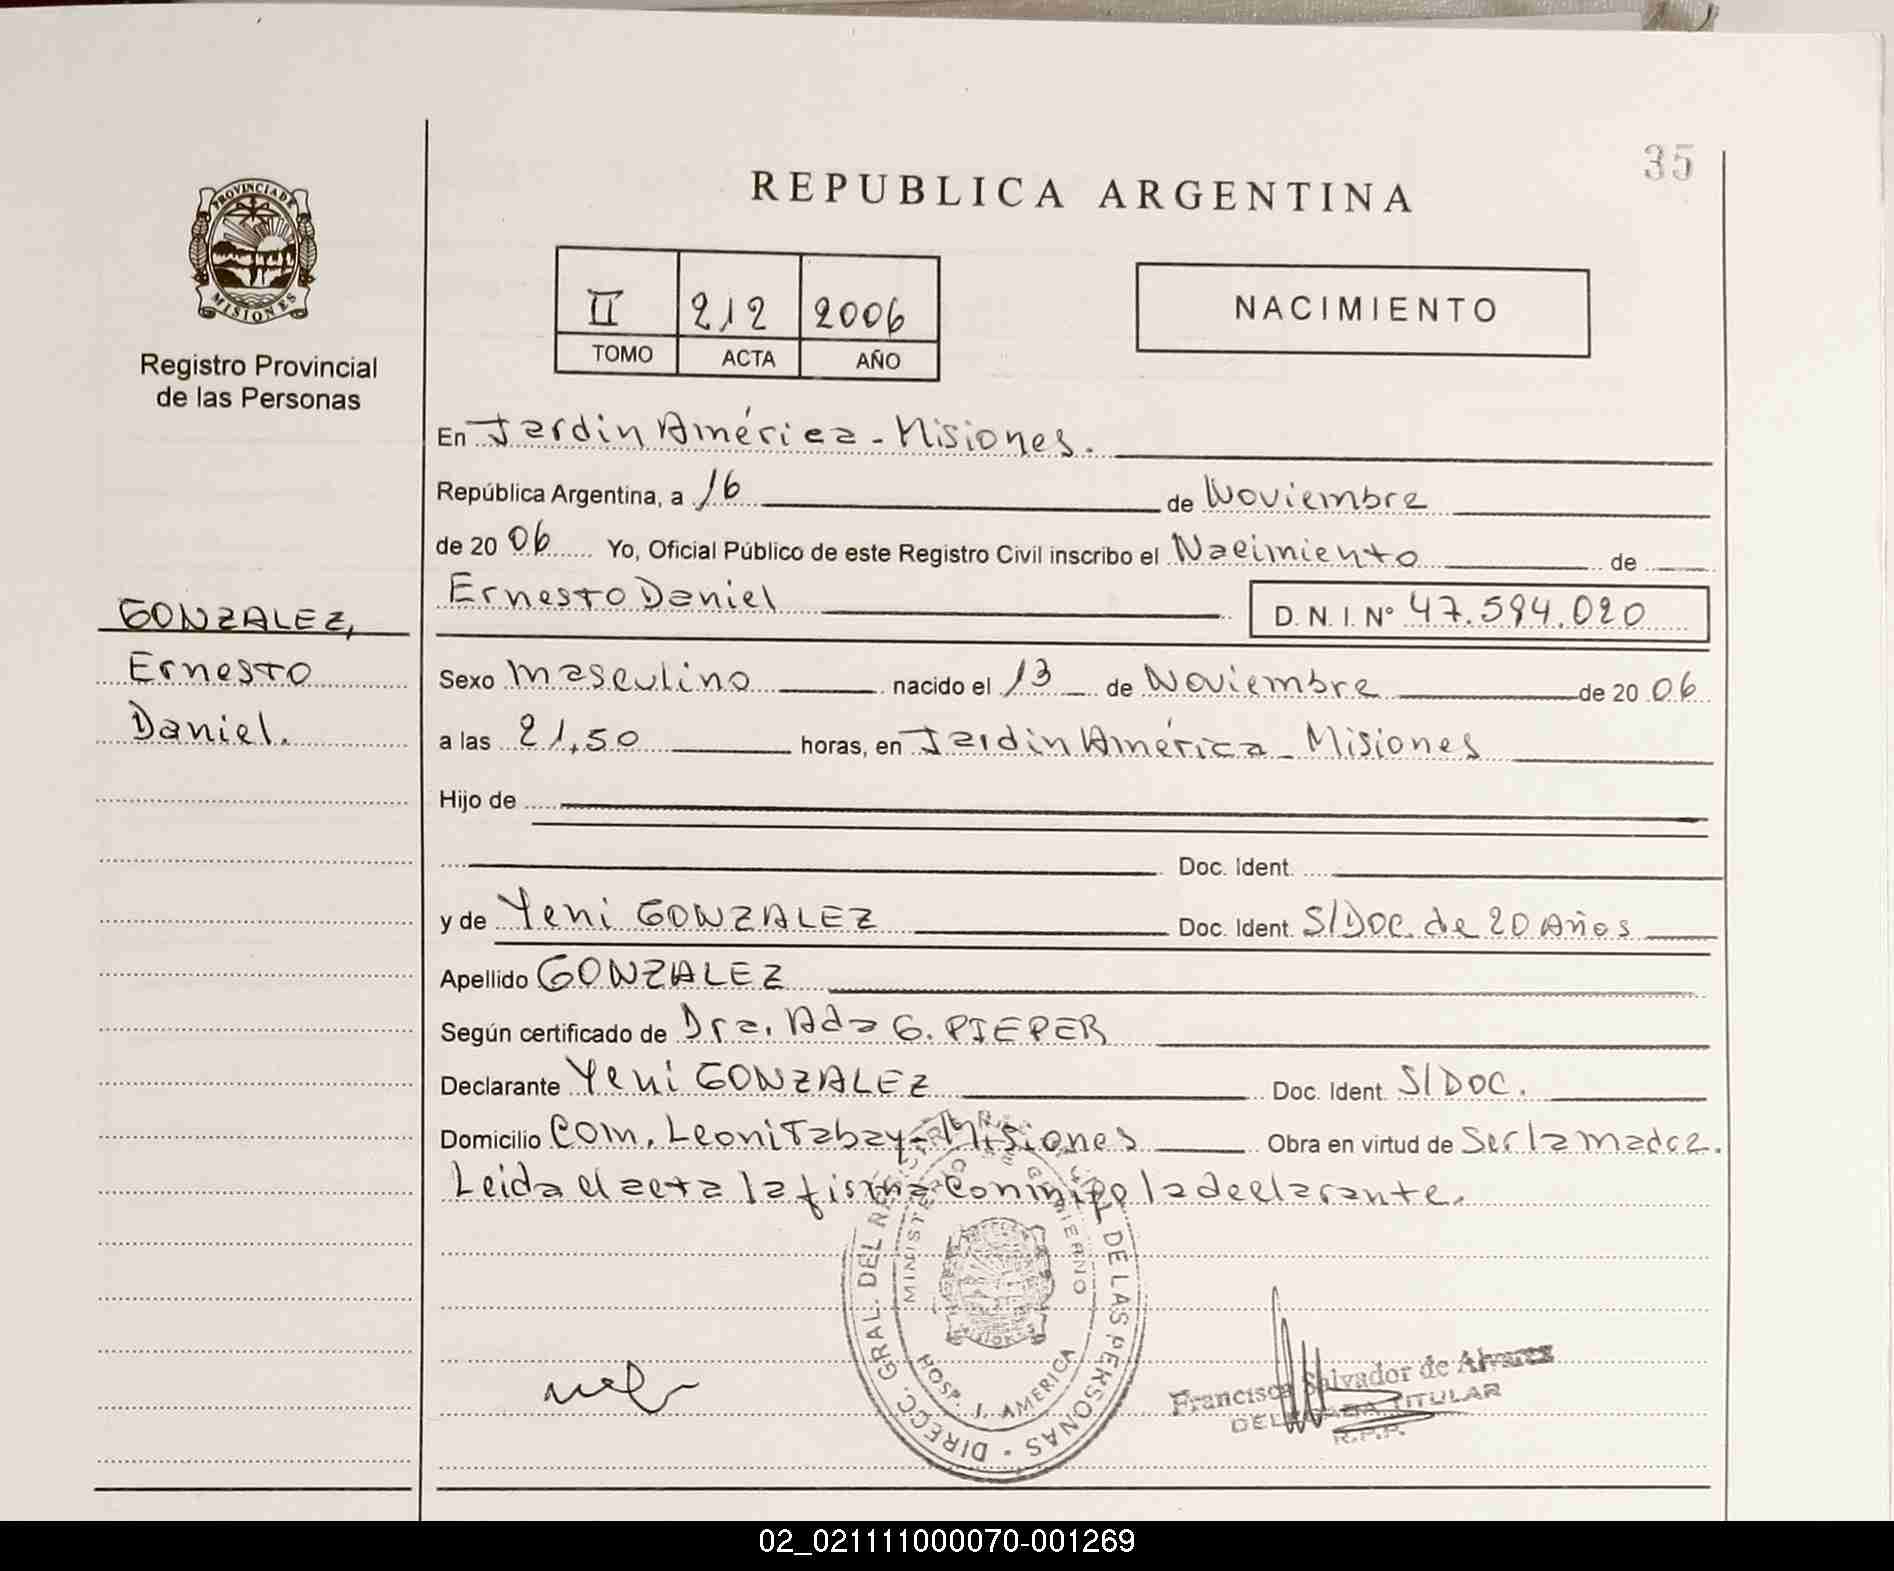 35
PROVINCIA DE
MISIONES
Registro Provincial
de las Personas
REPUBLICA ARGENTINA
II 212 2006
TOMO ACTA AÑO
NACIMIENTO
En Jardin América - Misiones.
República Argentina, a 16 de Noviembre
de 20 06 Yo, Oficial Público de este Registro Civil inscribo el Nacimiento de
Ernesto Daniel D. N. I. N° 47.594.020
GONZALEZ,
Ernesto
Daniel.
Sexo masculino nacido el 13 de Noviembre de 20 06
a las 21,50 horas, en Jardin América - Misiones
Hijo de
Doc. Ident.
y de Yeni GONZALEZ Doc. Ident. S/DOC. de 20 Años
Apellido GONZALEZ
Según certificado de Dra. Ada G. PIEPER
Declarante Yeni GONZALEZ Doc. Ident. S/DOC.
Domicilio Com. Leoni Tabay - Misiones Obra en virtud de Ser la madre.
Leida el acta la firma conmigo la declarante.
DIRECC. GRAL. DEL DE LAS PERSONAS
MINISTERIO DE GOBIERNO
HOSP. J. AMERICA
Francisca Salvador de Alvarez
DELEGADA TITULAR
R.P.P.
02_021111000070-001269